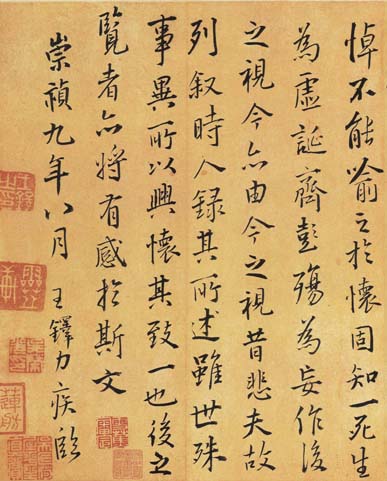 悼不能喻之於懷固知一死生
為虛誕齊彭殤為妄作後
之視今亦由今之視昔悲夫故
列叙時人録其所述雖世殊
事異所以興懷其致一也後之
覽者亦將有感於斯文
崇禎九年八月 王鐸力疾臨